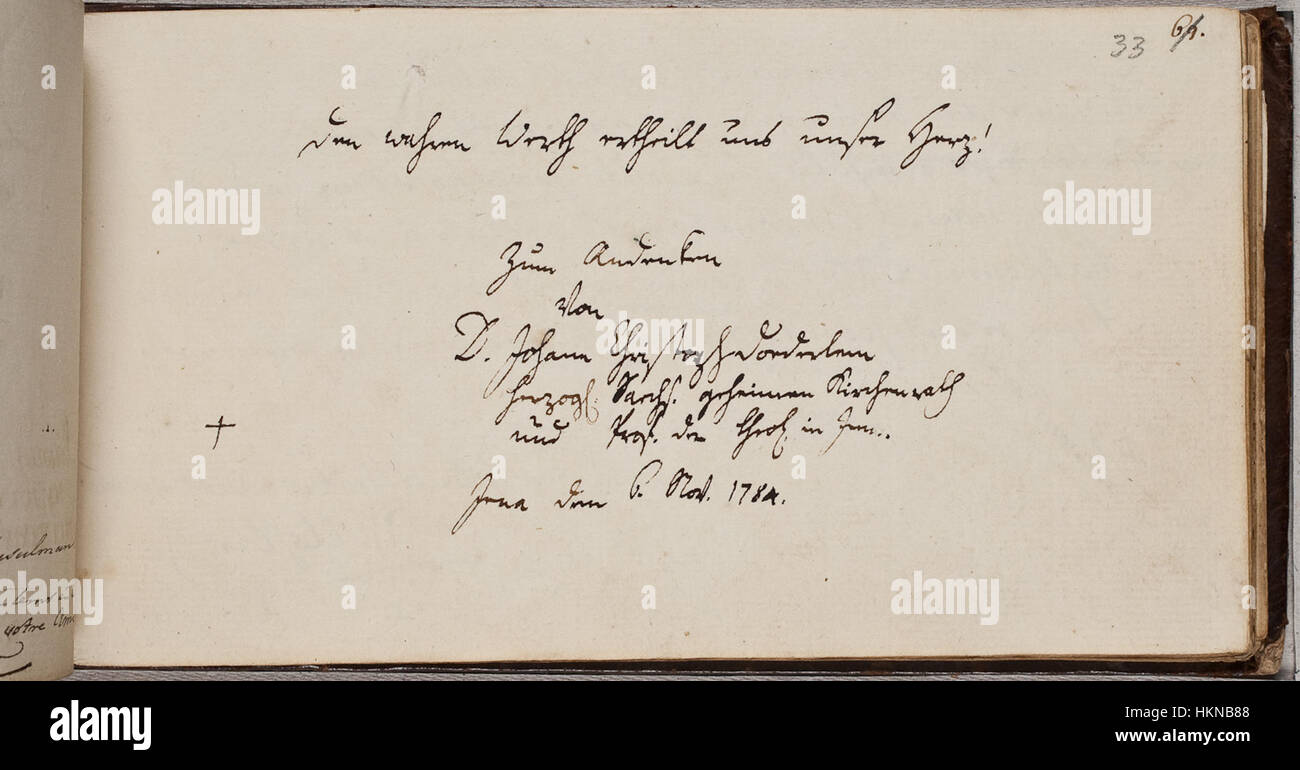 33 64.
Den wahren Werth ertheilt uns unser Herz!
Zum Andenken
von
D. Johann Christoph Doederlein
herzogl. Sächs. geheimen Kirchenrath
und Prof. der Theol. in Jena.
Jena den 6. Nov. 1784.
notre
alamy
Image ID: HKNB88
www.alamy.com